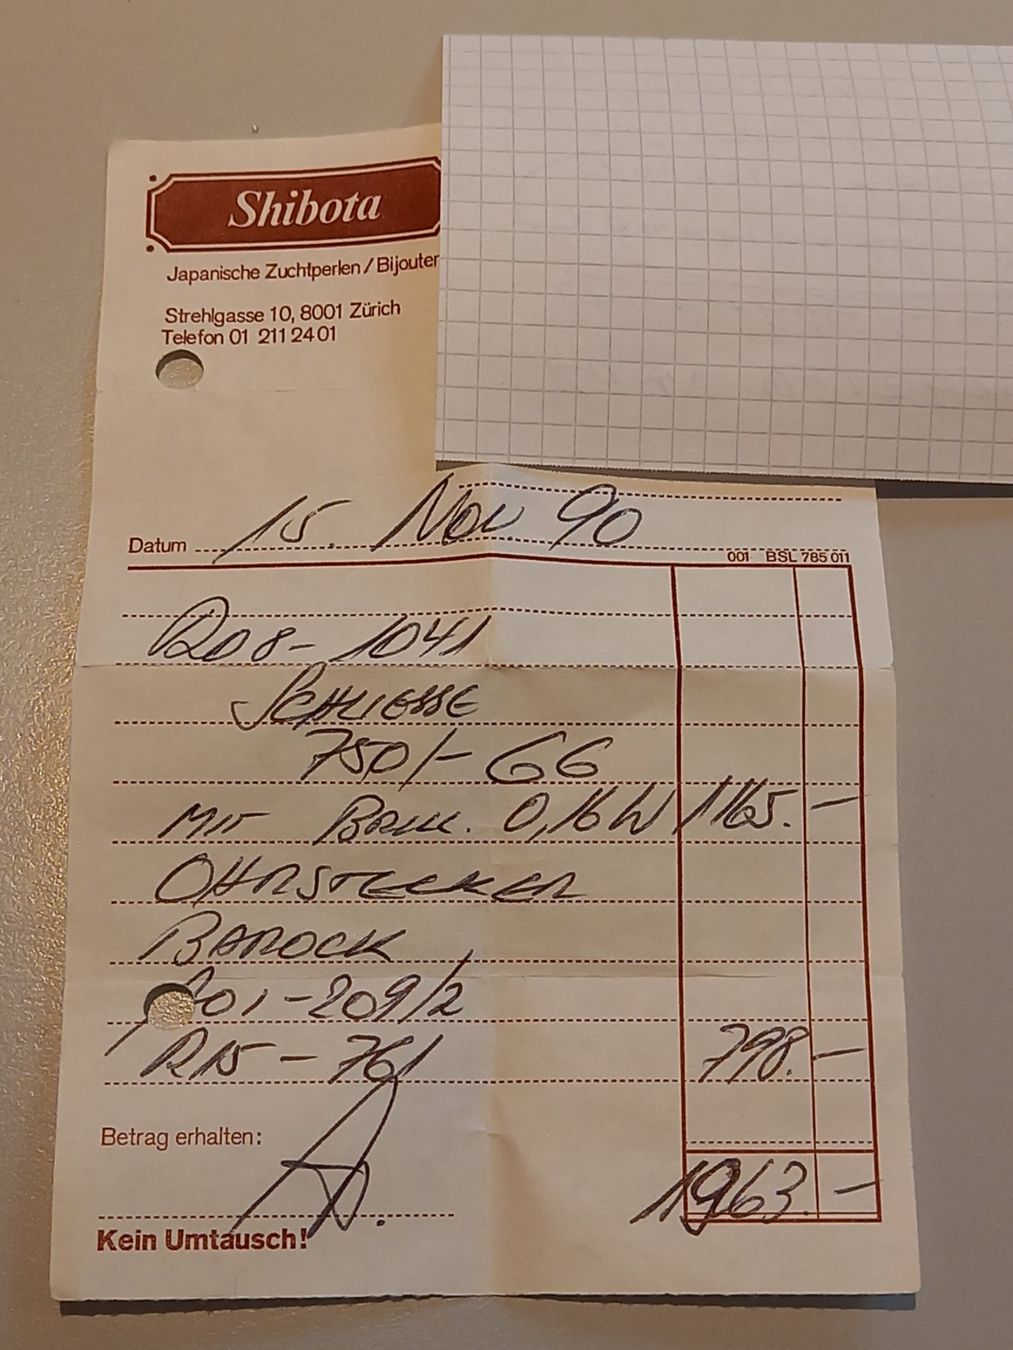 Shibota
Japanische Zuchtperlen / Bijouter
Strehlgasse 10, 8001 Zürich
Telefon 01 211 24 01
Datum 15. Nov 90
001 BSL 785 011
R08-1041
SCHLIESSE
750/- GG
MIT BRILL. 0,16 W 1165.-
OHRSTECKER
BAROCK
01-209/2
R15-761 798.-
Betrag erhalten:
1963.-
Kein Umtausch!